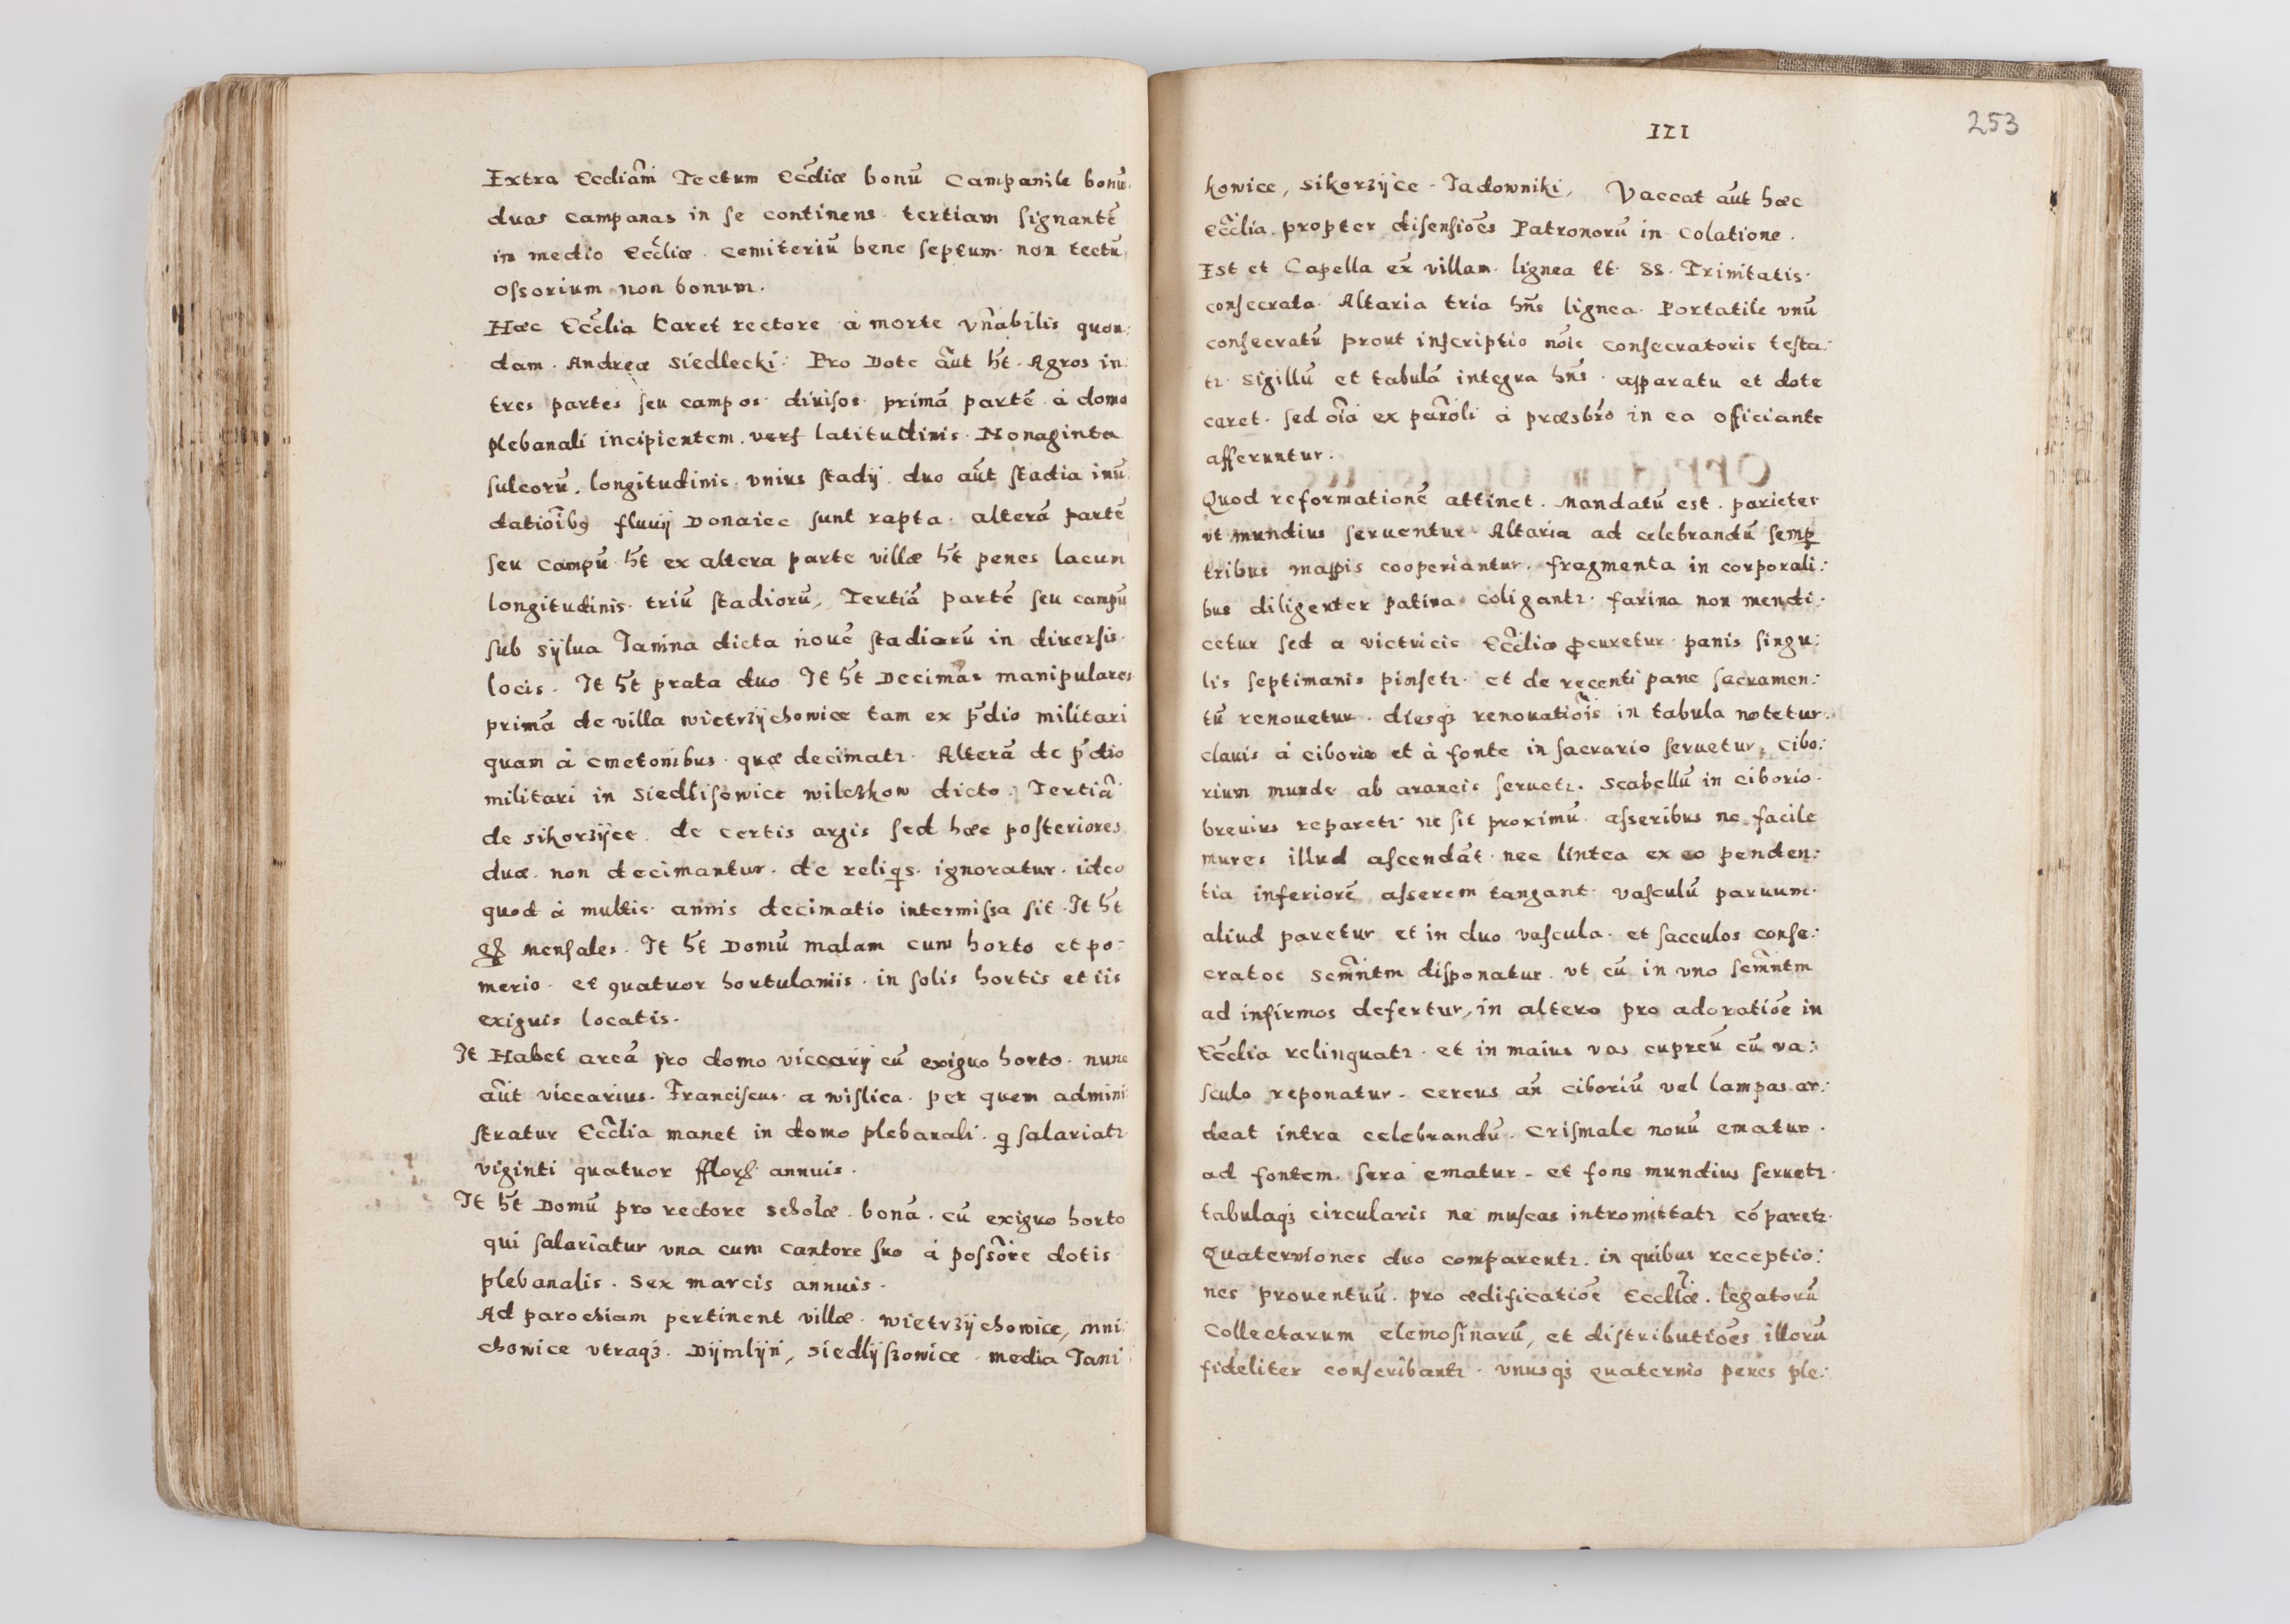 Extra Eccliam̃ Tectum Eccliæ bonũ Campanile bonũ.
duas campanas in se continens. tertiam signantẽ
in medio Eccliæ. Cemiteriũ bene septum. non tectũ
Ossorium non bonum.
Hæc Ecclia karet rectore à morte vñabilis quon:
dam. Andreæ Siedlecki: Pro Dote aũt h̃t. Agros in:
tres partes seu campos. diuisos. primã partẽ à domo
plebanali incipientem. vers latitudinis. Nonaginta
sulcorũ. longitudinis. vnius stadij. duo aũt stadia inũ
datioĩbꝫ fluuij Donaiec sunt rapta. alterã partẽ
seu campũ h̃t ex altera parte villæ h̃t penes lacum
longitudinis. triũ stadiorũ, Tertiã partẽ seu campũ
sub sÿlua Janina dicta nouẽ stadiorũ in diuersis.
locis. It h̃t prata duo. It h̃t Decimas manipulares
primã de villa wietrzÿchowice tam ex p̃dio militari
quam à cmetonibus. quæ decimatꝛ. Alterã de p̃dio
militari in Siedlisowice wilczkow dicto. Tertiã
de sikorzÿce. de certis argis sed hæc posteriores
duæ. non decimantur. de reliqs. ignoratur. ideo
quod à multis. annis decimatio intermissa sit. It h̃t
mensales. It h̃t Domũ malam cum horto et po-
merio. et quatuor hortulaniis. in solis hortis et iis
exiguis locatis.
It Habet areã pro domo viccarij cũ exiguo horto. nunc
aũt viccarius. Franciscus. a wislica. per quem admini:
stratur Ecclia manet in domo plebanali. q salariatꝛ
viginti quatuor fflorꝝ annuis.
It h̃t Domũ pro rectore scholæ. bonã. cũ exiguo horto
qui salariatur vna cum cantore suo à possõre dotis
plebanalis. Sex marcis annuis.
Ad parochiam pertinent villæ. wietrzÿchowice, mni:
chowice vtraqꝫ. Dÿmlÿń, siedlÿszowice. media Jani
III
253
kowice, sikorzÿce. Jadowniki, Vaccat aũt hæc
Ecclia. propter disensioẽs Patronorũ in Colatione.
Est et Capella ex̃ villam. lignea tt. SS. Trinitatis.
consecrata. Altaria tria hñs lignea. Portatile vnũ
consecratũ prout inscriptio nõis consecratoris testa:
tꝛ. sigillũ et tabulã integra hñs. apparatu et dote
caret. sed oĩa ex parõli à præsbr̃o in ea officiante
afferuntur.
Quod reformationẽ attinet. Mandatũ est. parietes
vt mundius seruentur. Altaria ad celebrandũ semꝑ
tribus mappis cooperiantur. fragmenta in corporali:
bus diligenter patina coligantꝛ. farina non mendi:
cetur sed a victricis Eccliæ ꝓcuretur. panis singu:
lis septimanis pinsetꝛ. et de recenti pane sacramen:
tũ renouetur. diesqꝫ renouatiõis in tabula notetur.
clauis à ciborio et à fonte in sacrario seruetur, Cibo:
rium munde ab araneis seruetꝛ. Scabellũ in ciborio.
breuius reparetꝛ ne sit proximũ. asseribus ne facile
mures illud ascendãt. nec lintea ex eo penden:
tia inferiorẽ asserem tangant. vasculũ paruum.
aliud paretur et in duo vascula. et sacculos conse:
cratos Semñtm disponatur. vt cũ in vno semñtm
ad infirmos defertur, in altero pro adoratiõe in
Ecclia relinquatꝛ. et in maius vas cupreũ cũ va:
sculo reponatur. cereus añ ciboriũ vel lampas ar:
deat intra celebrandũ. Crismale nouũ ematur.
ad fontem. sera ematur. et fons mundius seruetꝛ.
tabulaqꝫ circularis ne muscas intromittatꝛ cõparetꝛ.
Quaterniones duo comparentꝛ. in quibus receptio:
nes prouentuũ. pro ædificatiõe Eccliæ. legatorũ
Collectarum elemosinarũ, et distributioẽs illorũ
fideliter conscribantꝛ. vnusqꝫ quaternio penes ple: